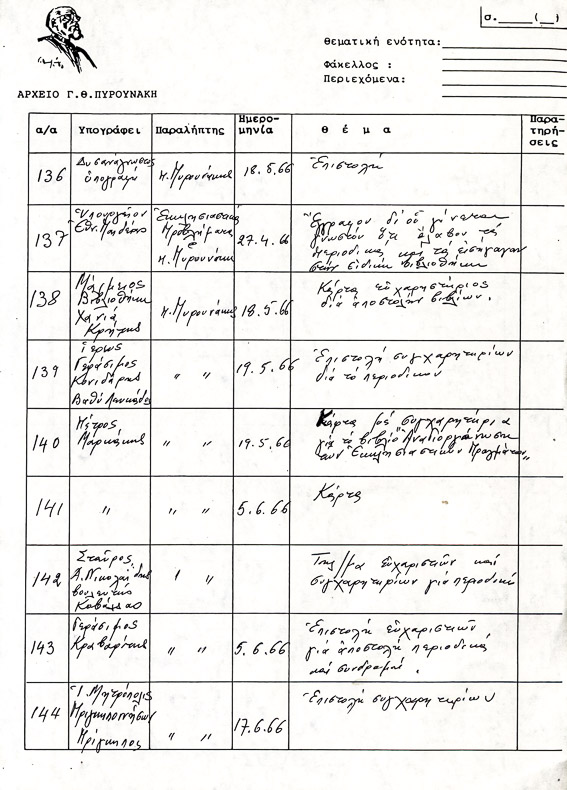 σ.____(__)
θεματική ενότητα:
Φάκελλος :
Περιεχόμενα:
ΑΡΧΕΙΟ Γ.Θ.ΠΥΡΟΥΝΑΚΗ
α/α Υπογράφει Παραλήπτης Ημερο-μηνία θ έ μ α Παρα-τηρή-σεις
136 Δυσανάγνωστος
ὑπογραφή Π. Πυρουνάκης 18.5.66 Ἐπιστολή
137 Ὑπουργεῖον
Ἐθν. Παιδείας Ἐκκλησιαστικά
Προβλήματα
Π. Πυρουνάκη 27.4.66 Ἔγγραφον δι' οὗ γίνεται
γνωστόν ὅτι ἔλαβον τά
περιοδικά καί τά εἰσήγαγαν
στήν εἰδική βιβλιοθήκη
138 Μάρκειος
Βιβλιοθήκη
Χανιά
Κρήτης Π. Πυρουνάκης 18.5.66 Κάρτα εὐχαριστήριος
διά ἀποστολήν βιβλίων.
139 Γεράσιμος
Κονιδάρης
" " 19.5.66 Ἐπιστολή συγχαρητηρίων
διά τό περιοδικόν
140 Πέτρος
" " 19.5.66 Κάρτα μέ συγχαρητήρια
γιά τό βιβλίο "Αναδιοργάνωση
τῶν Ἐκκλησιαστικῶν Πραγμάτων"
141 " " " 5.6.66 Κάρτα
142 Σταῦρος
Α. Νικολαΐδης
βουλευτής
Καβάλλας " " Τηλ/μα εὐχαριστιῶν καί
συγχαρητηρίων γιά περιοδικό
143 Γεράσιμος
" " 5.6.66 Ἐπιστολή εὐχαριστιῶν
γιά ἀποστολή περιοδικά
καί συνδρομή.
144 Ἱ. Μητρόπολις
Πριγκηποννήσων
Πρίγκηπος " " 17.6.66 Ἐπιστολή συγχαρητηρίων